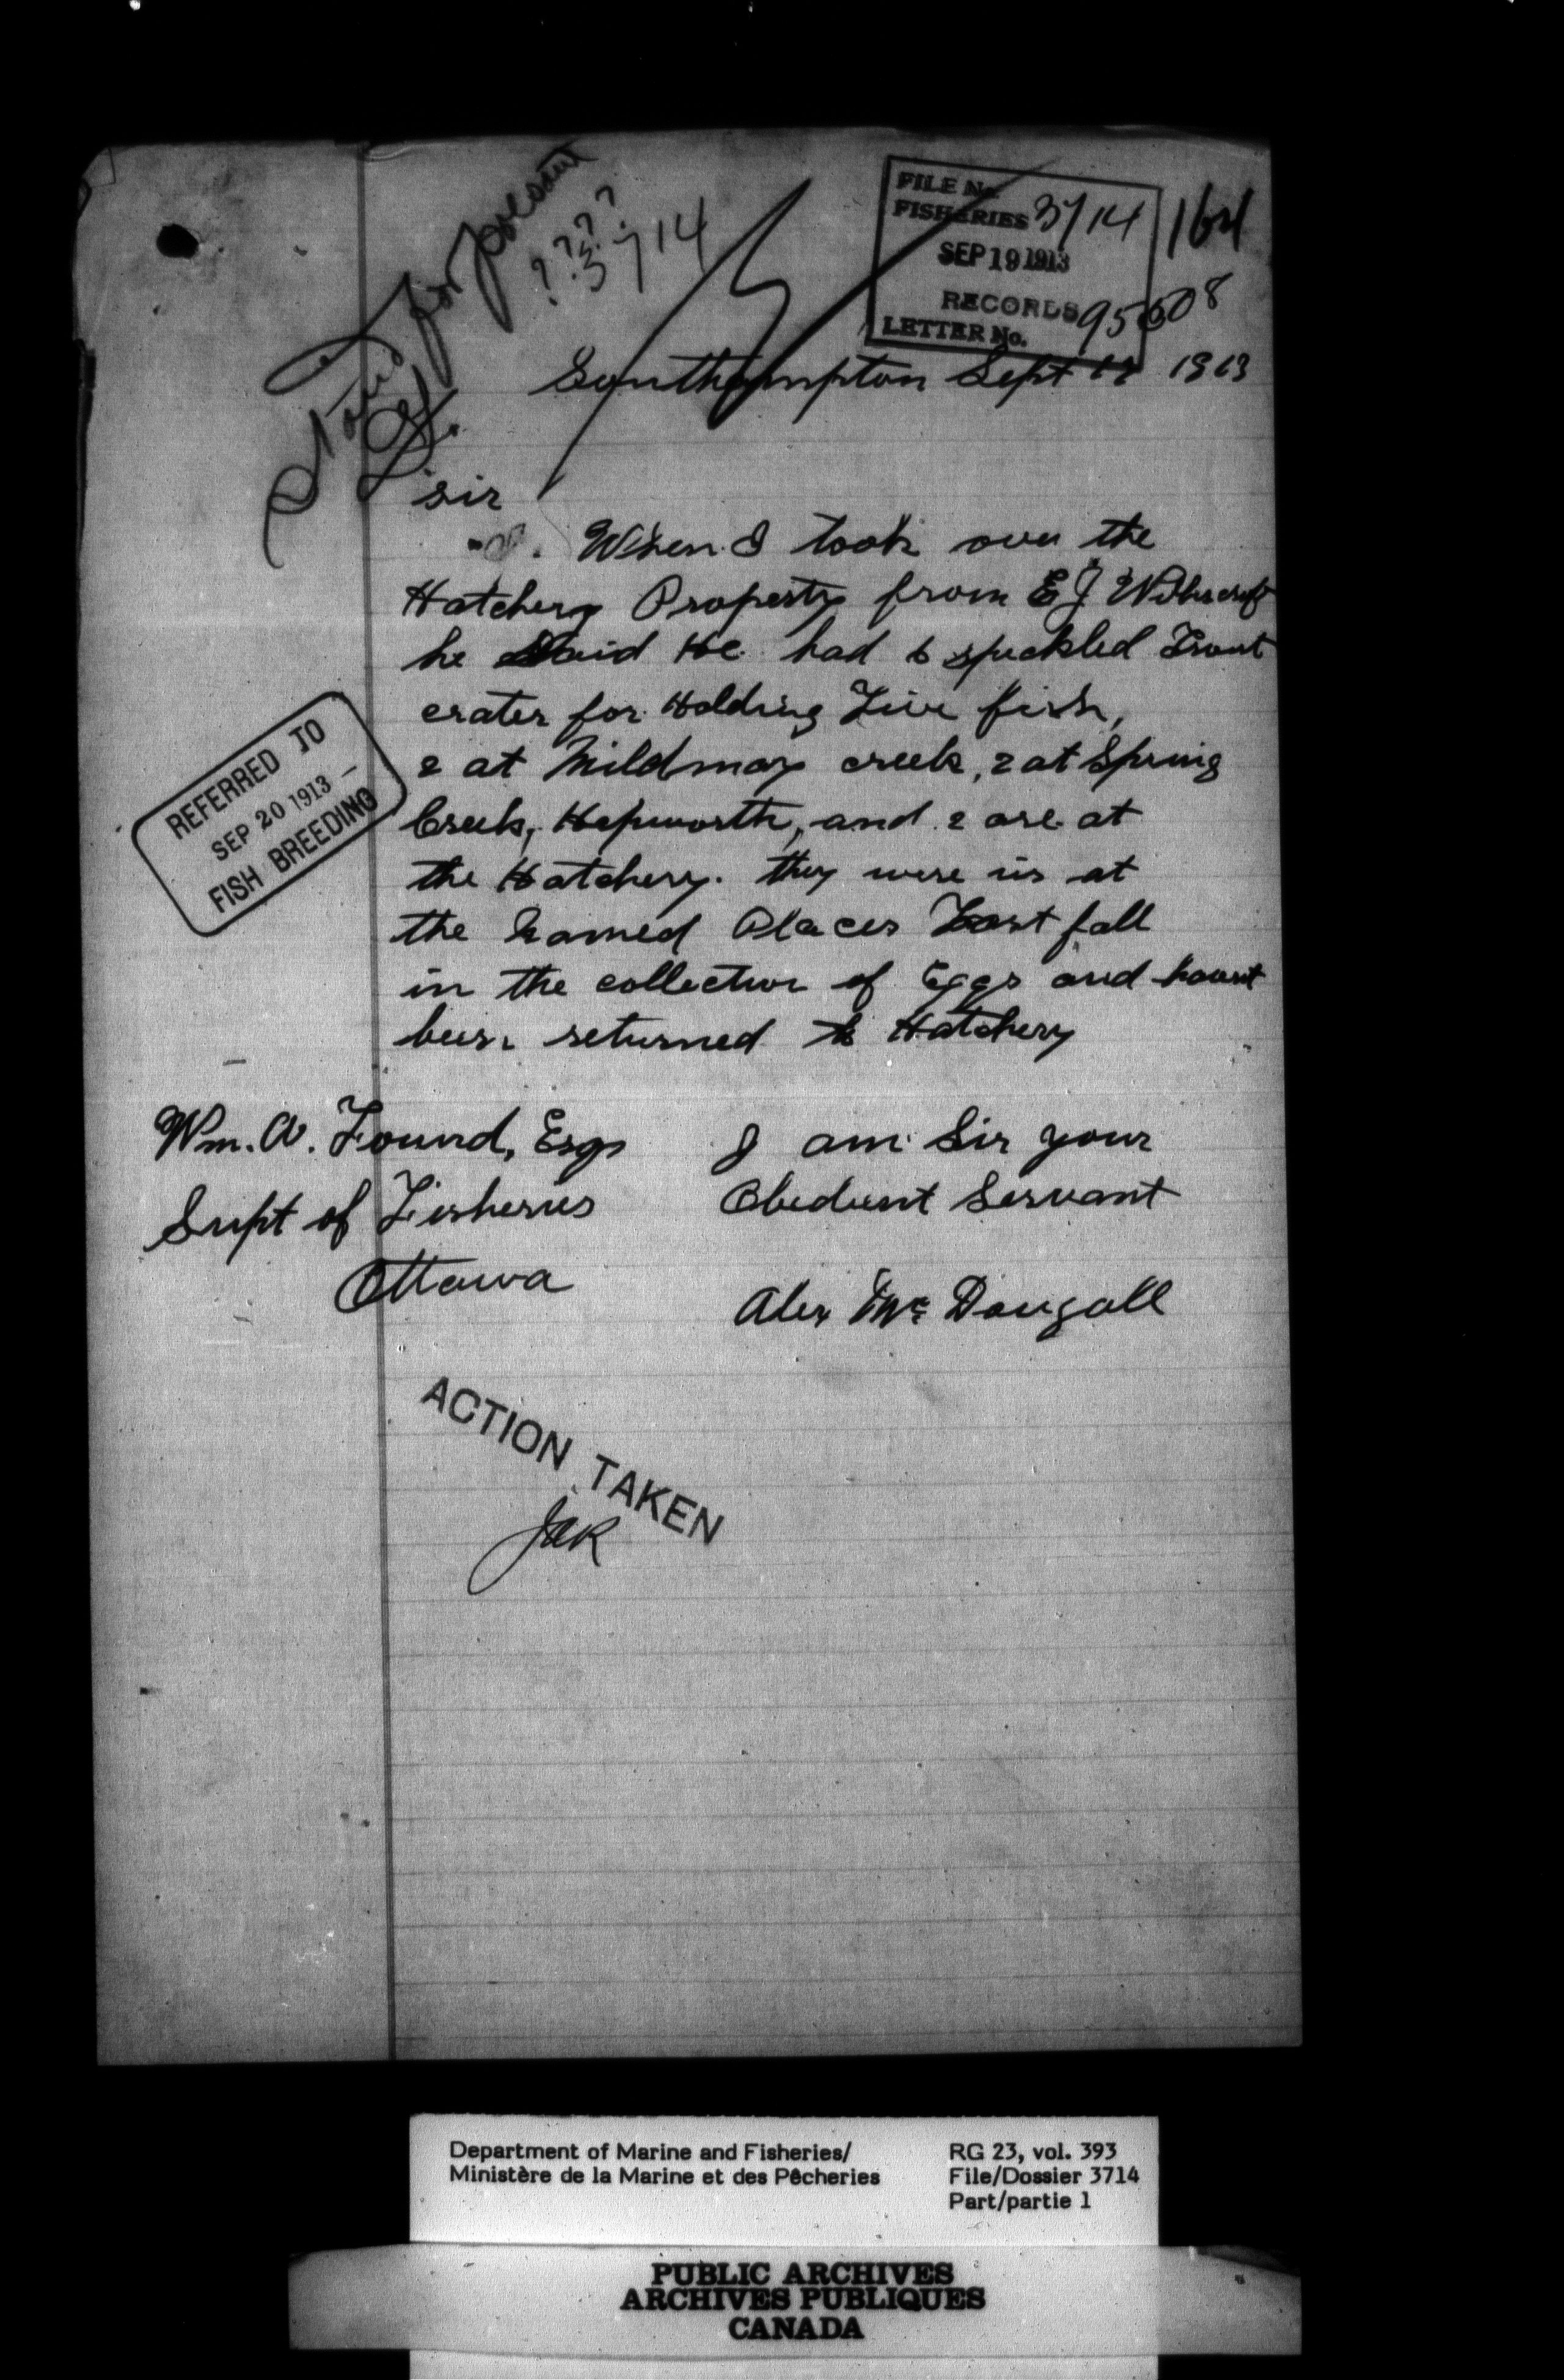 Noted for present
? ? ? ? ?
3714
FILE No.
FISHERIES 3714
SEP 19 1913
RECORDS
LETTER No. 95608
164
Southampton Sept 17 1913
Sir
When I took over the
Hatchery Property from E J
he Said He had 6 speckled Trout
crates for Holding Live fish,
2 at Mildmay creek, 2 at Spring
Creek, Hepworth, and 2 are at
the Hatchery. they were us at
the Named Places Last fall
in the collection of Eggs and havent
been returned to Hatchery
REFERRED TO
SEP 20 1913
FISH BREEDING
I am Sir your
Obedient Servant
Alex McDougall
Wm. A. Found, Esq
Supt of Fisheries
Ottawa
ACTION TAKEN
Department of Marine and Fisheries/
Ministère de la Marine et des Pêcheries
RG 23, vol. 393
File/Dossier 3714
Part/partie 1
PUBLIC ARCHIVES
ARCHIVES PUBLIQUES
CANADA